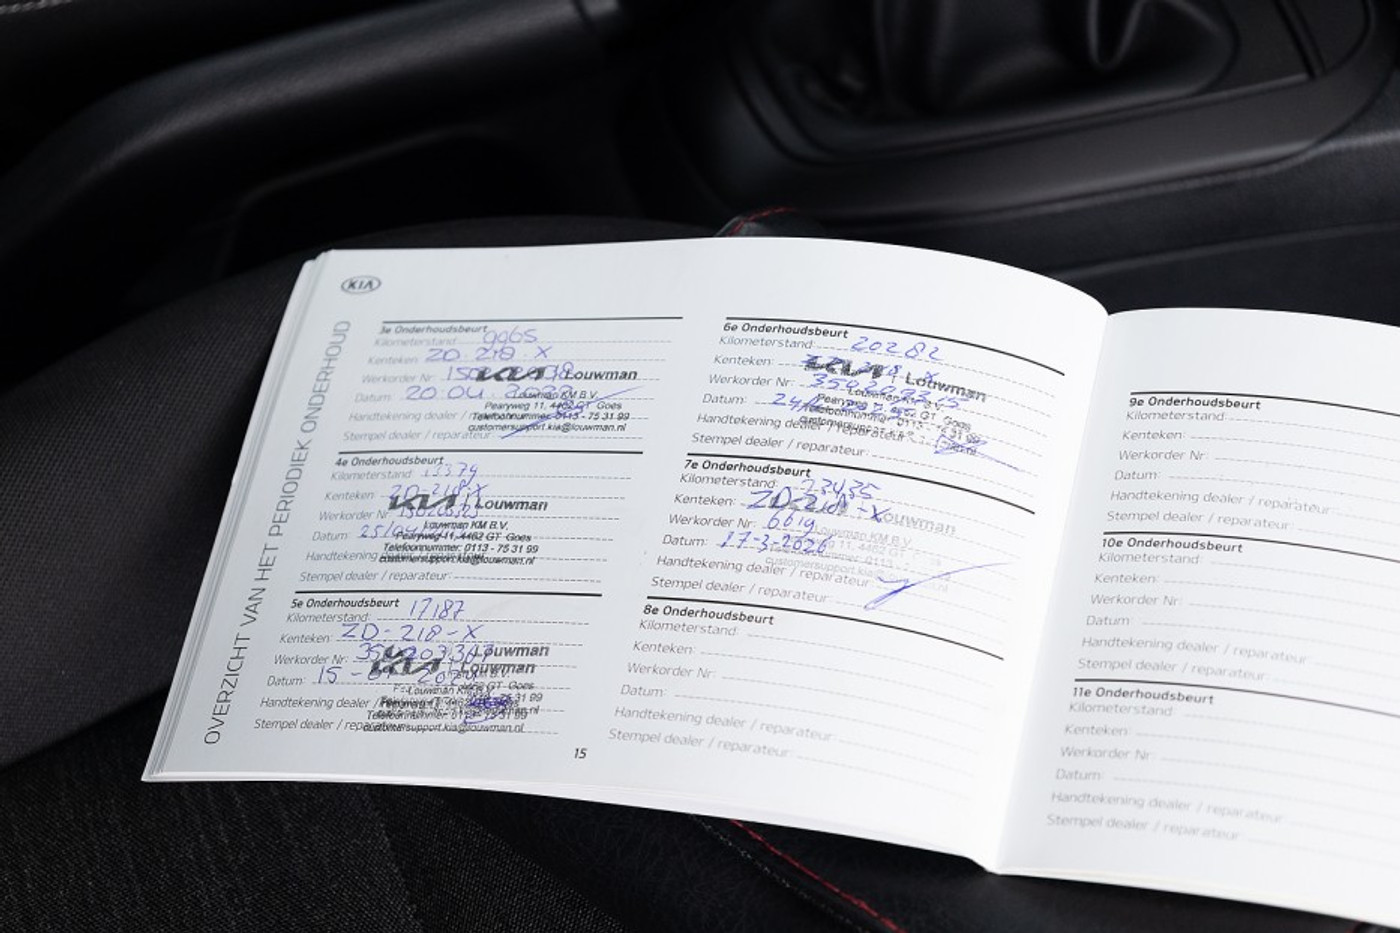 KIA
OVERZICHT VAN HET PERIODIEK ONDERHOUD
3e Onderhoudsbeurt
Kilometerstand: 9965
Kenteken: ZD-218-X
Werkorder Nr:
Louwman
Datum: 20-04
Louwman KM B.V.
Pearyweg 11, 4462 GT Goes
Handtekening dealer /
Telefoonnummer: 0113 - 75 31 99
customersupport.kia@louwman.nl
Stempel dealer / reparateur:
4e Onderhoudsbeurt
Kilometerstand: 13379
Kenteken: ZD-218-X
Louwman
Werkorder Nr:
Louwman KM B.V.
Datum: 25/04
Pearyweg 11, 4462 GT Goes
Telefoonnummer: 0113 - 75 31 99
Handtekening dealer / reparateur:
customersupport.kia@louwman.nl
Stempel dealer / reparateur:
5e Onderhoudsbeurt
Kilometerstand: 17187
Kenteken: ZD-218-X
Louwman
Werkorder Nr:
Louwman
Datum: 15-
Handtekening dealer /
Telefoonnummer: 0113 - 75 31 99
Stempel dealer / reparateur:
customersupport.kia@louwman.nl
15
6e Onderhoudsbeurt
Kilometerstand: 20282
Kenteken:
Louwman
Werkorder Nr:
Louwman KM B.V.
Datum:
Pearyweg 11, 4462 GT Goes
Handtekening dealer / reparateur:
Stempel dealer / reparateur:
7e Onderhoudsbeurt
Kilometerstand: 23435
Kenteken: ZD-218-X
Louwman
Werkorder Nr: 6619
Datum: 17-3-2026
Handtekening dealer / reparateur:
Stempel dealer / reparateur:
8e Onderhoudsbeurt
Kilometerstand:
Kenteken:
Werkorder Nr:
Datum:
Handtekening dealer / reparateur:
Stempel dealer / reparateur:
9e Onderhoudsbeurt
Kilometerstand:
Kenteken:
Werkorder Nr:
Datum:
Handtekening dealer / reparateur:
Stempel dealer / reparateur:
10e Onderhoudsbeurt
Kilometerstand:
Kenteken:
Werkorder Nr:
Datum:
Handtekening dealer / reparateur:
Stempel dealer / reparateur:
11e Onderhoudsbeurt
Kilometerstand:
Kenteken:
Werkorder Nr:
Datum:
Handtekening dealer / reparateur:
Stempel dealer / reparateur: